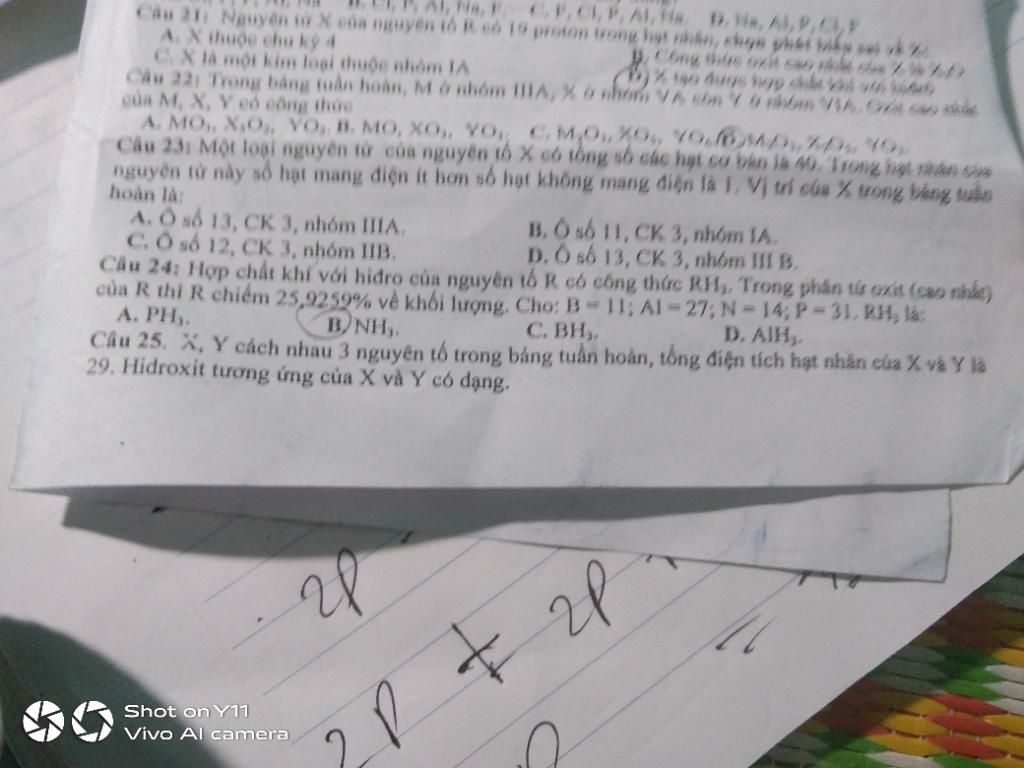 B. Cl, P, Al, Na, F. C. F, Cl, P, Al, Na. D. Na, Al, P, Cl, F
Câu 21: Nguyên tử X của nguyên tố R có 19 proton trong hạt nhân, chọn phát biểu sai về X:
A. X thuộc chu kỳ 4
B. Công thức oxit cao nhất của X là X₂O
C. X là một kim loại thuộc nhóm IA
D. X tạo được hợp chất khí với
Câu 22: Trong bảng tuần hoàn, M ở nhóm IIIA, X ở nhóm VA còn Y ở nhóm VIA. Oxit cao nhất
của M, X, Y có công thức
A. MO₃, X₅O₂, YO₃. B. MO, XO₃, YO₃. C. M₂O₃, XO₅, YO₆. D. M₂O₃, X₂O₅, YO₃.
Câu 23: Một loại nguyên tử của nguyên tố X có tổng số các hạt cơ bản là 40. Trong hạt nhân của
nguyên tử này số hạt mang điện ít hơn số hạt không mang điện là 1. Vị trí của X trong bảng tuần
hoàn là:
A. Ô số 13, CK 3, nhóm IIIA. B. Ô số 11, CK 3, nhóm IA.
C. Ô số 12, CK 3, nhóm IIB. D. Ô số 13, CK 3, nhóm III B.
Câu 24: Hợp chất khí với hiđro của nguyên tố R có công thức RH₃. Trong phân tử oxit (cao nhất)
của R thì R chiếm 25,9259% về khối lượng. Cho: B = 11; Al = 27; N = 14; P = 31. RH₃ là:
A. PH₃. B. NH₃. C. BH₃. D. AlH₃.
Câu 25. X, Y cách nhau 3 nguyên tố trong bảng tuần hoàn, tổng điện tích hạt nhân của X và Y là
29. Hidroxit tương ứng của X và Y có dạng.
2P
2P
2P
Shot on Y11
Vivo AI camera